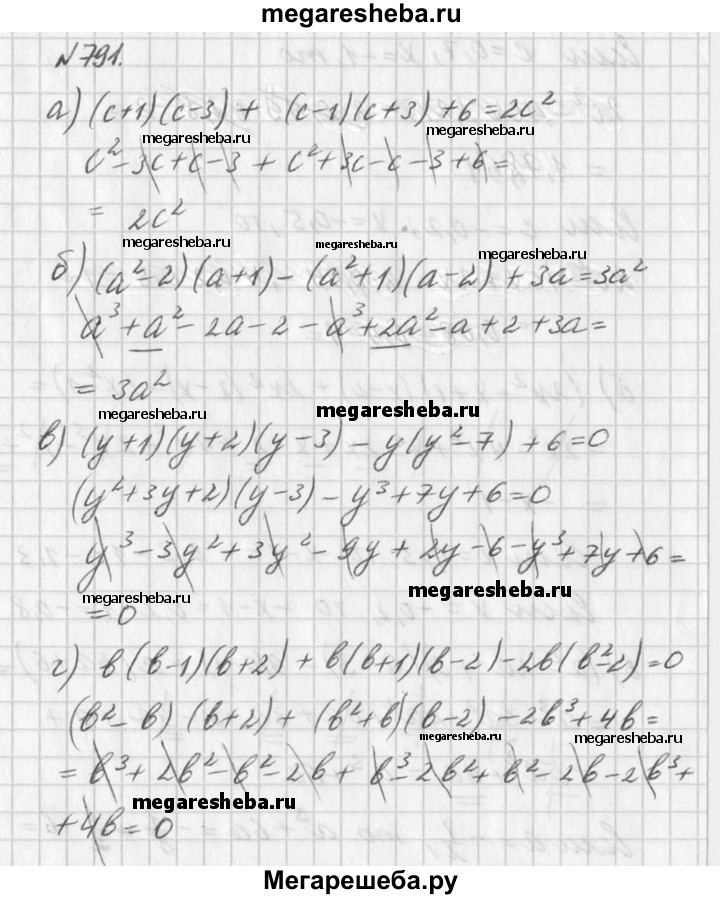 megaresheba.ru
№791.
а) (c+1)(c-3) + (c-1)(c+3) + 6 = 2c²
megaresheba.ru megaresheba.ru
c² - 3c + c - 3 + c² + 3c - c - 3 + 6 =
= 2c²
megaresheba.ru megaresheba.ru megaresheba.ru
б) (a² - 2)(a+1) - (a²+1)(a-2) + 3a = 3a²
a³ + a² - 2a - 2 - a³ + 2a² - a + 2 + 3a =
= 3a²
megaresheba.ru megaresheba.ru
в) (y+1)(y+2)(y-3) - y(y²-7) + 6 = 0
(y²+3y+2)(y-3) - y³ + 7y + 6 = 0
y³ - 3y² + 3y² - 9y + 2y - 6 - y³ + 7y + 6 =
megaresheba.ru megaresheba.ru
= 0
г) в(в-1)(в+2) + в(в+1)(в-2) - 2в(в²-2) = 0
(в² - в)(в+2) + (в²+в)(в-2) - 2в³ + 4в =
megaresheba.ru megaresheba.ru
= в³ + 2в² - в² - 2в + в³ - 2в² + в² - 2в - 2в³ +
megaresheba.ru
+ 4в = 0
Мегарешеба.ру